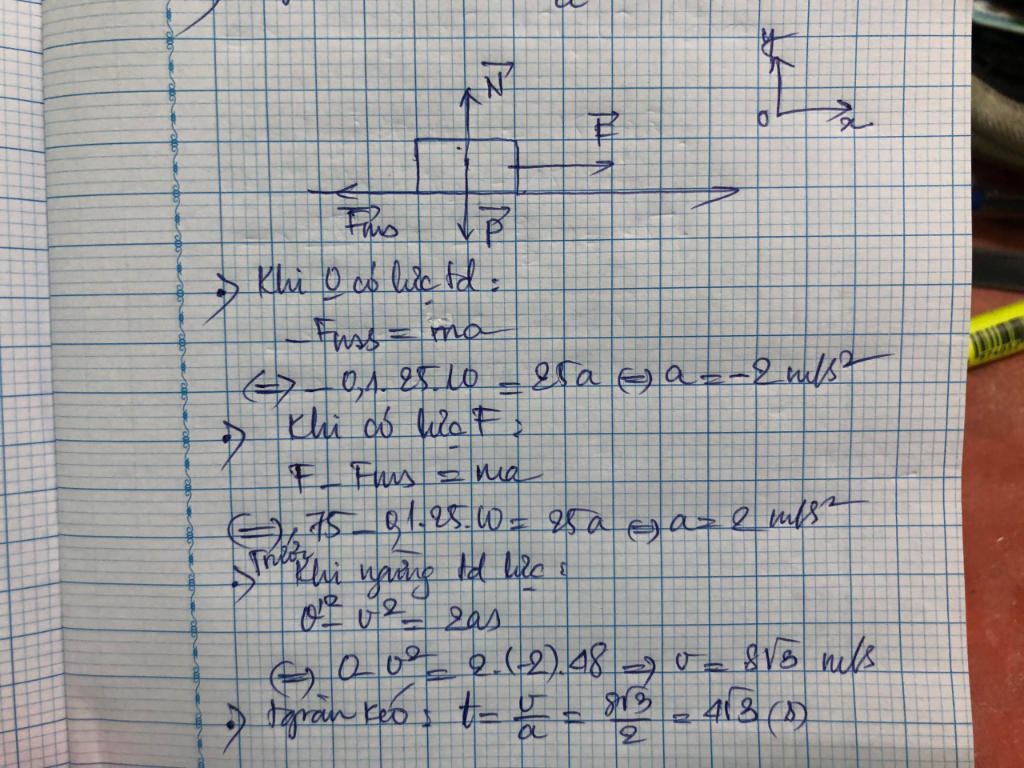 N
y
F
O
x
Fms
P
Khi 0 có lực td :
- Fms = ma
<=> - 0,1.25.10 = 25a <=> a = -2 m/s²
Khi có lực F :
F - Fms = ma
<=> 75 - 0,1.25.10 = 25a <=> a = 2 m/s²
Trước
Khi ngừng td lực :
0² - v² = 2as
<=> 0 - v² = 2.(-2).48 => v = 8√3 m/s
tgian kéo : t = v/a = 8√3/2 = 4√3 (s)